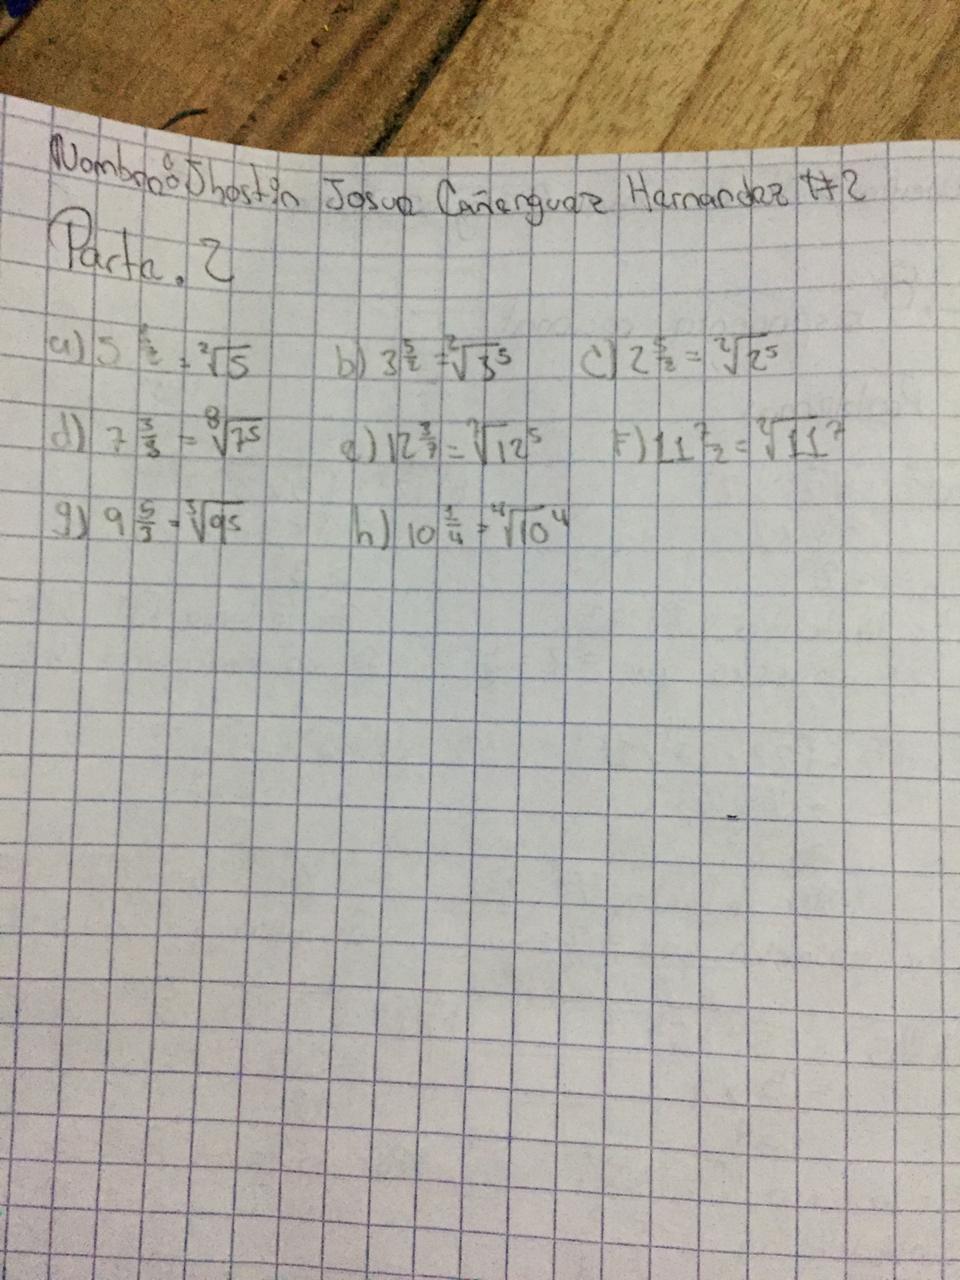 Nombre: Jhostin Josue Cañenguez Hernandez #2
Parte. 2
a) 5 1/2 = ²√5 b) 3 5/2 = ²√3⁵ c) 2 5/2 = ²√2⁵
d) 7 3/3 = ⁸√7⁵ e) 12 3/7 = ⁷√12⁵ F) 11 7/2 = ²√11⁷
g) 9 5/3 = ³√95 h) 10 1/4 = ⁴√10⁴